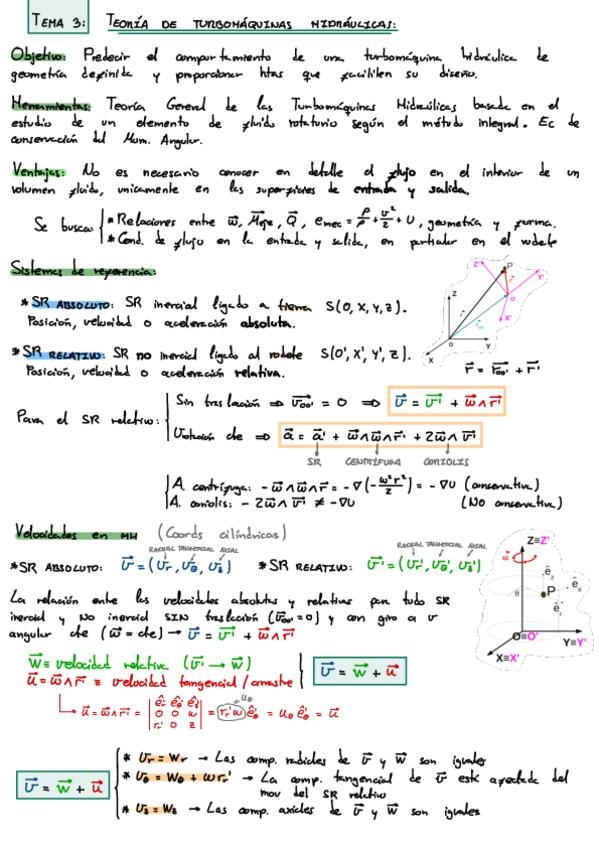 TEMA 3: TEORÍA DE TURBOMÁQUINAS HIDRÁULICAS:
Objetivo: Predecir el comportamiento de una turbomáquina hidráulica de
geometría definida y proporcionar htas que faciliten su diseño.
Herramientas: Teoría General de las Turbomáquinas Hidráulicas basada en el
estudio de un elemento de fluido rotatorio según el método integral. Ec de
conservación del Mom. Angular.
Ventajas: No es necesario conocer en detalle el flujo en el interior de un
volumen fluido, unicamente en las superficies de entrada y salida.
Se buscan
* Relaciones entre w⃗, M⃗eje, Q⃗, e mec = P/ρ + v²/2 + U, geometría y forma.
* Cond. de flujo en la entrada y salida, en particular en el rodete
Sistemas de referencia:
* SR ABSOLUTO: SR inercial ligado a tierra S(O, X, Y, Z).
Posición, velocidad o aceleración absoluta.
* SR RELATIVO: SR no inercial ligado al rodete S(O', X', Y', Z').
Posición, velocidad o aceleración relativa.
Z' P Y' Z O' X' O Y X
r⃗ = r⃗oo' + r⃗'
Para el SR relativo:
Sin traslación ⇒ v⃗oo' = 0 ⇒ v⃗ = v⃗' + w⃗∧r⃗'
w⃗ rotación cte ⇒ a⃗ = a⃗' + w⃗∧w⃗∧r⃗' + 2w⃗∧v⃗'
SR CENTRÍFUGA CORIOLIS
A. centrífuga: - w⃗∧w⃗∧r⃗ = -∇(-w²r²/2) = -∇U (conservativa)
A. coriolis: - 2w⃗∧v⃗' ≠ -∇U (No conservativa)
Velocidades en MH (Coords cilíndricas)
RADIAL TANGENCIAL AXIAL RADIAL TANGENCIAL AXIAL
* SR ABSOLUTO: v⃗ = (vr, vθ, vz) * SR RELATIVO: v⃗' = (vr', vθ', vz')
Z≡Z' w⃗ ê z θ P ê θ ê r O≡O' Y≡Y' X≡X'
La relación entre las velocidades absolutas y relativas para todo SR
inercial y NO inercial SIN traslación (v⃗oo' = 0) y con giro a v
angular cte (w⃗ = cte) → v⃗ = v⃗' + w⃗∧r⃗'
w⃗ ≡ velocidad relativa (v⃗' → w⃗)
u⃗ = w⃗∧r⃗ ≡ velocidad tangencial/arrastre
v⃗ = w⃗ + u⃗
u⃗ = w⃗∧r⃗' = | êr êθ êz | 0 0 w | rr' 0 z | = rr'w êθ = uθ êθ = u⃗
uθ
v⃗ = w⃗ + u⃗
* vr = wr → Las comp. radiales de v⃗ y w⃗ son iguales
* vθ = wθ + wrr' → La comp. tangencial de v⃗ está afectada del
mov del SR relativo
* vz = wz → Las comp. axiales de v⃗ y w⃗ son iguales